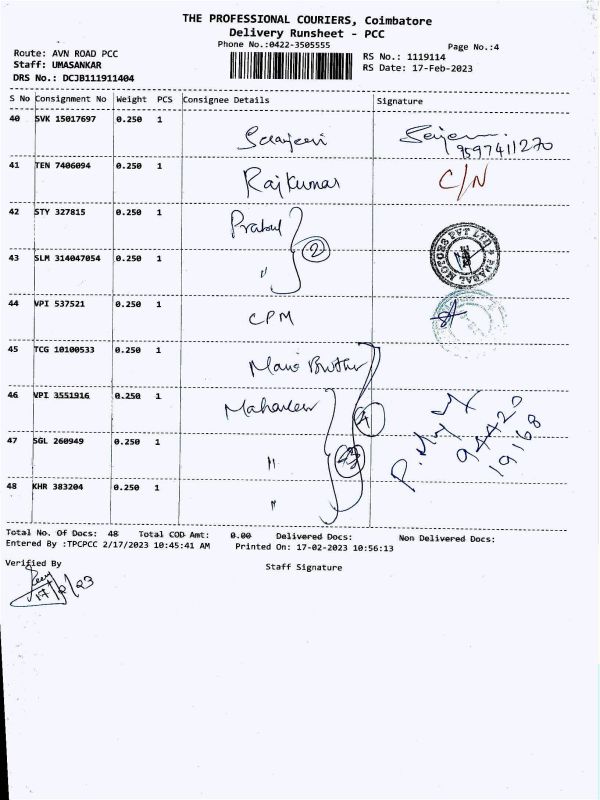 THE PROFESSIONAL COURIERS, Coimbatore
Delivery Runsheet - PCC
Phone No.:0422-3505555
Page No.:4
Route: AVN ROAD PCC
RS No.: 1119114
Staff: UMASANKAR
RS Date: 17-Feb-2023
DRS No.: DCJB111911404
S No Consignment No Weight PCS Consignee Details Signature
40 SVK 15017697 0.250 1
9597411270
41 TEN 7406094 0.250 1 Rajkumar C/N
42 STY 327815 0.250 1 Prabul
2
43 SLM 314047054 0.250 1 "
44 VPI 537521 0.250 1 CPM
45 TCG 10100533 0.250 1 Brother
46 VPI 3551916 0.250 1 Mahaveer
4
94423
19168
47 SGL 260949 0.250 1 "
48 KHR 383204 0.250 1 "
Total No. Of Docs: 48 Total COD Amt: 0.00 Delivered Docs: Non Delivered Docs:
Entered By :TPCPCC 2/17/2023 10:45:41 AM Printed On: 17-02-2023 10:56:13
Verified By
Staff Signature
17/2/23